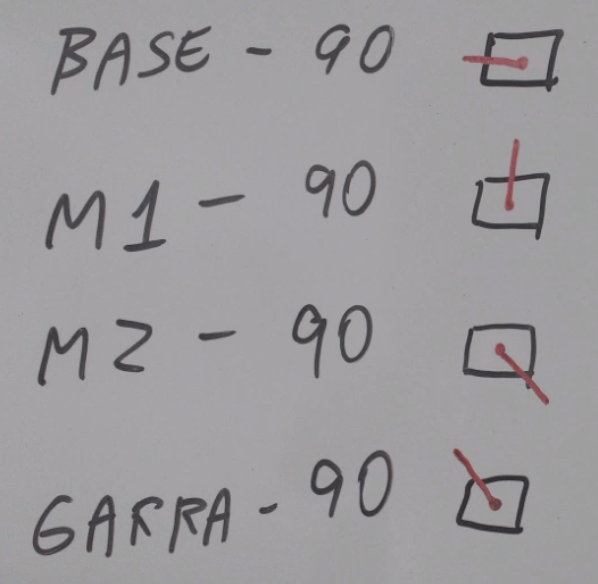 BASE - 90
M1 - 90
M2 - 90
GARRA - 90